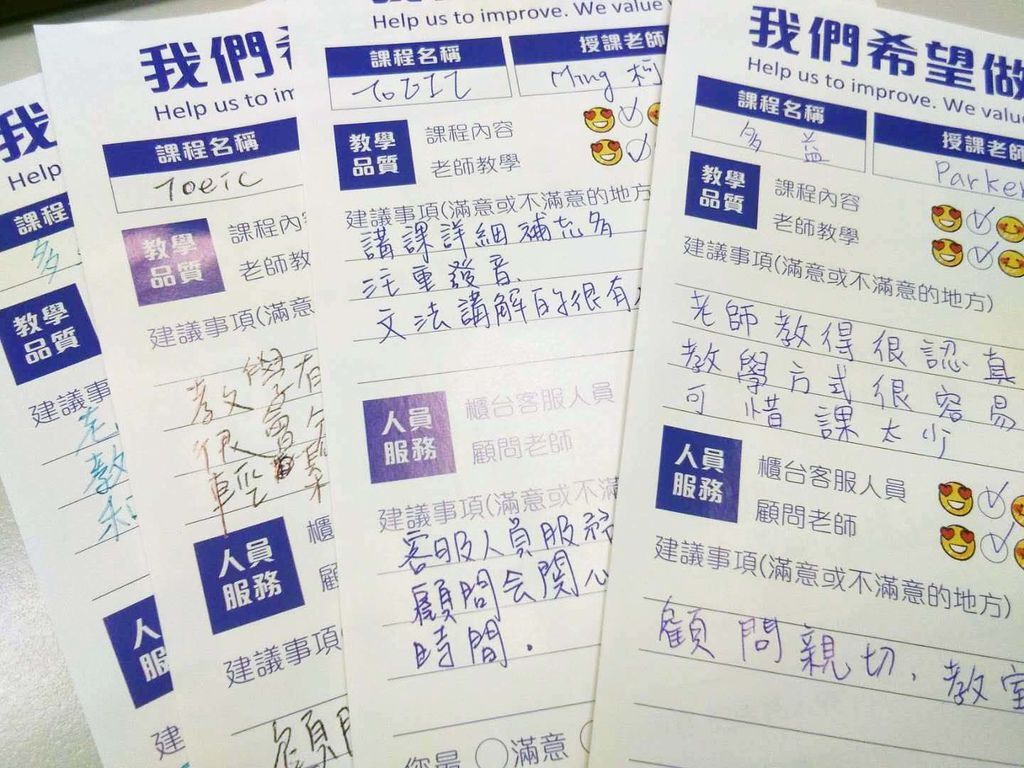 我
Help
課程
多
教學
品質
建議事
老
教
人
服
建
我們希
Help us to im
課程名稱
Toeic
教學
品質
課程內容
老師教
建議事項(滿意
教學有
很會
輕鬆
人員
服務
櫃
建議事項
顧問
Help us to improve. We value
課程名稱
授課老師
TOEIC
Ming 柯
教學
品質
課程內容
老師教學
建議事項(滿意或不滿意的地方
講課詳細補充多
注重發音
文法講解的很有
人員
服務
櫃台客服人員
顧問老師
建議事項(滿意或不滿
客服人員服務
顧問会関心
時間.
您是 滿意
我們希望做
Help us to improve. We value
課程名稱
授課老師
多益
Parke
教學
品質
課程內容
老師教學
建議事項(滿意或不滿意的地方)
老師教得很認真
教學方式很容易
可惜課太少
人員
服務
櫃台客服人員
顧問老師
建議事項(滿意或不滿意的地方)
顧問親切, 教室